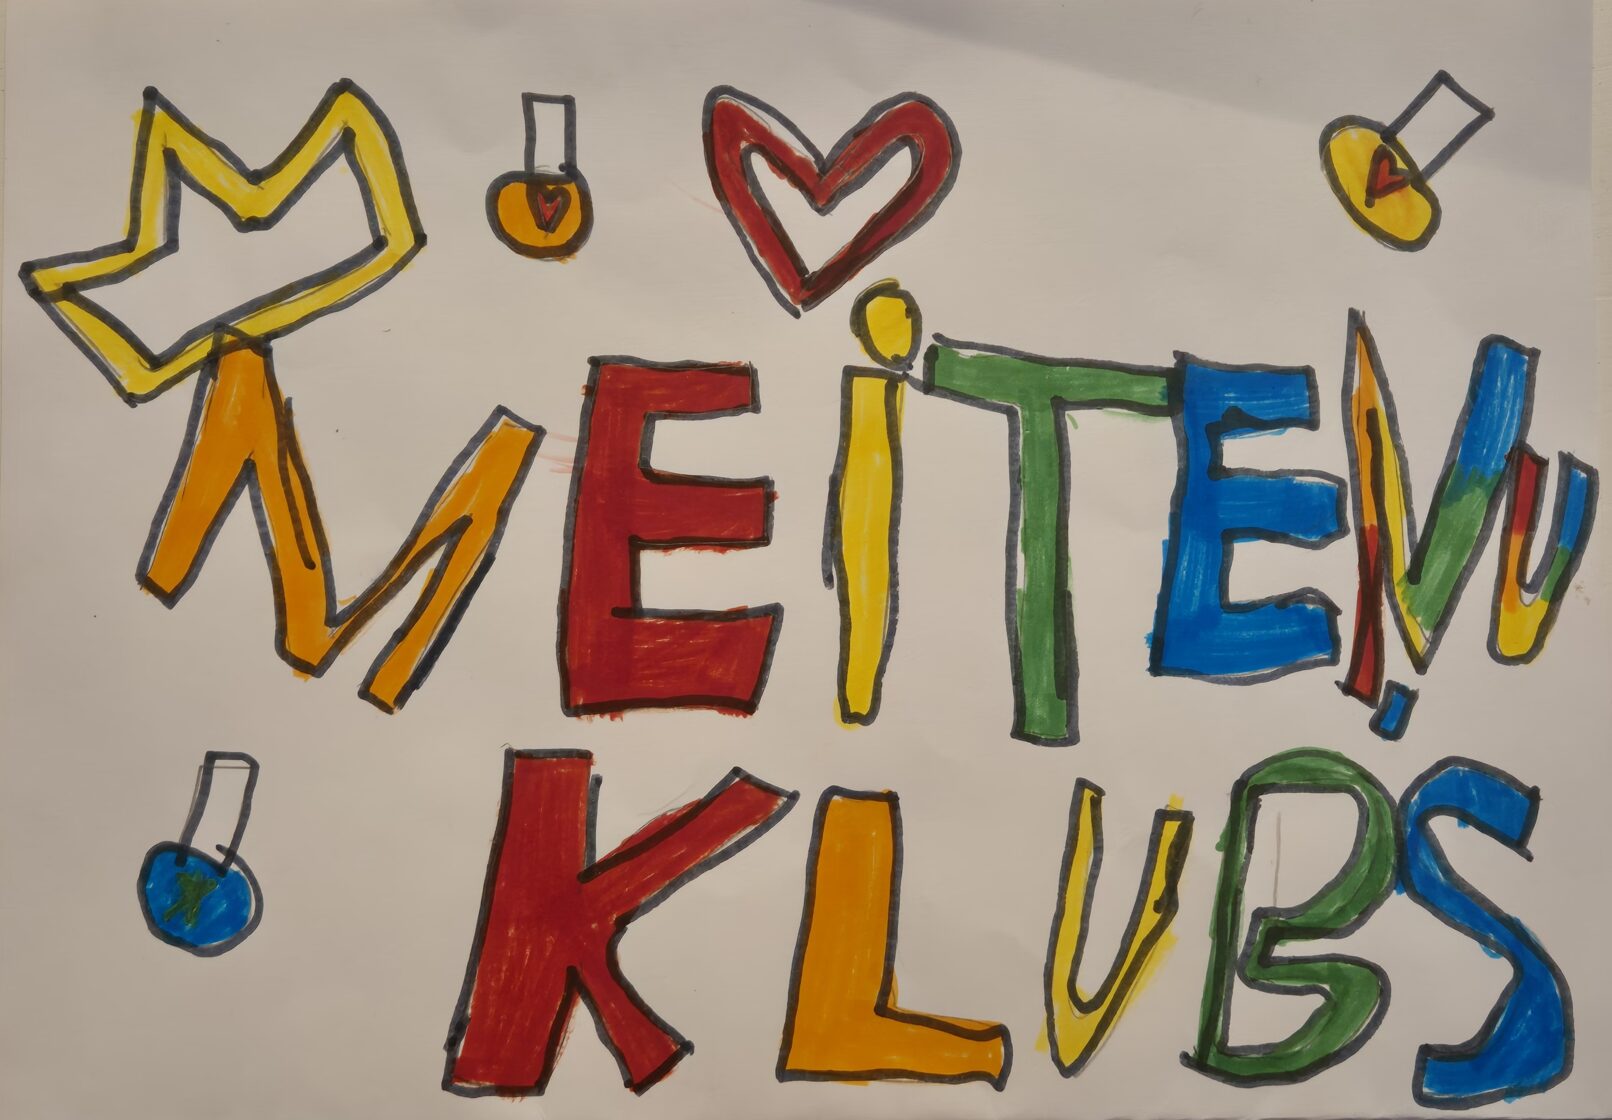 MEiTEŅU
KLUBS